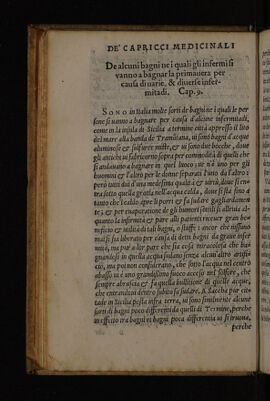 DE' CAPRICCI MEDICINALI
De alcuni bagni ne i quali gli infermi si
vanno a bagnar la primauera per
causa di uarie, & diuerse infer-
mitadi. Cap. 9.
SONO in Italia molte sorti de bagni ne i quali le per
sone si uanno a bagnare per causa d'alcune infermitadi,
come in la insula di Sicilia a termine città appresso il lito
del mare alla banda de Tramõtana, ui sono bagni di acque
aluminose & solfuree miste, & ui sono due bocche, doue
gli antichi
andauano a bagnare in quel luoco
huomini & l'altro per le donne
però tutti dui d'una medesima qualità & uirtù,
sotto quella grotta nell'acqua calda, doue si sta fino a
tanto che l'caldo apre li porri & fa sudare gagliardamen
te, & per euaporatione de gli humori
quanto la infermità & pare alli patienti riceuer gran be-
neficio
mal si sia liberato per causa di detti bagni da graue infer
mità, ma pur a lor pare che sia cosa miracolosa che ba-
gnandosi in quella acqua fa sudare senza alcun'altro artifi
cio, ma poi non considerano, che sotto l'acqua nel centro
abasso ui è uno grandissimo fuoco acceso nel solfore, che
sempre abruscia & fa quella bullitione di quelle acque,
che entrandoui dentro subito fa sudare. A Saccha pur cit-
tade in Sicilia posta infra terra, ui sono similmente alcune
sorti di bagni poco differenti da quelli de Termine, perche
in effetto tra bagni et bagni poca differentia ui si truoua,
perche